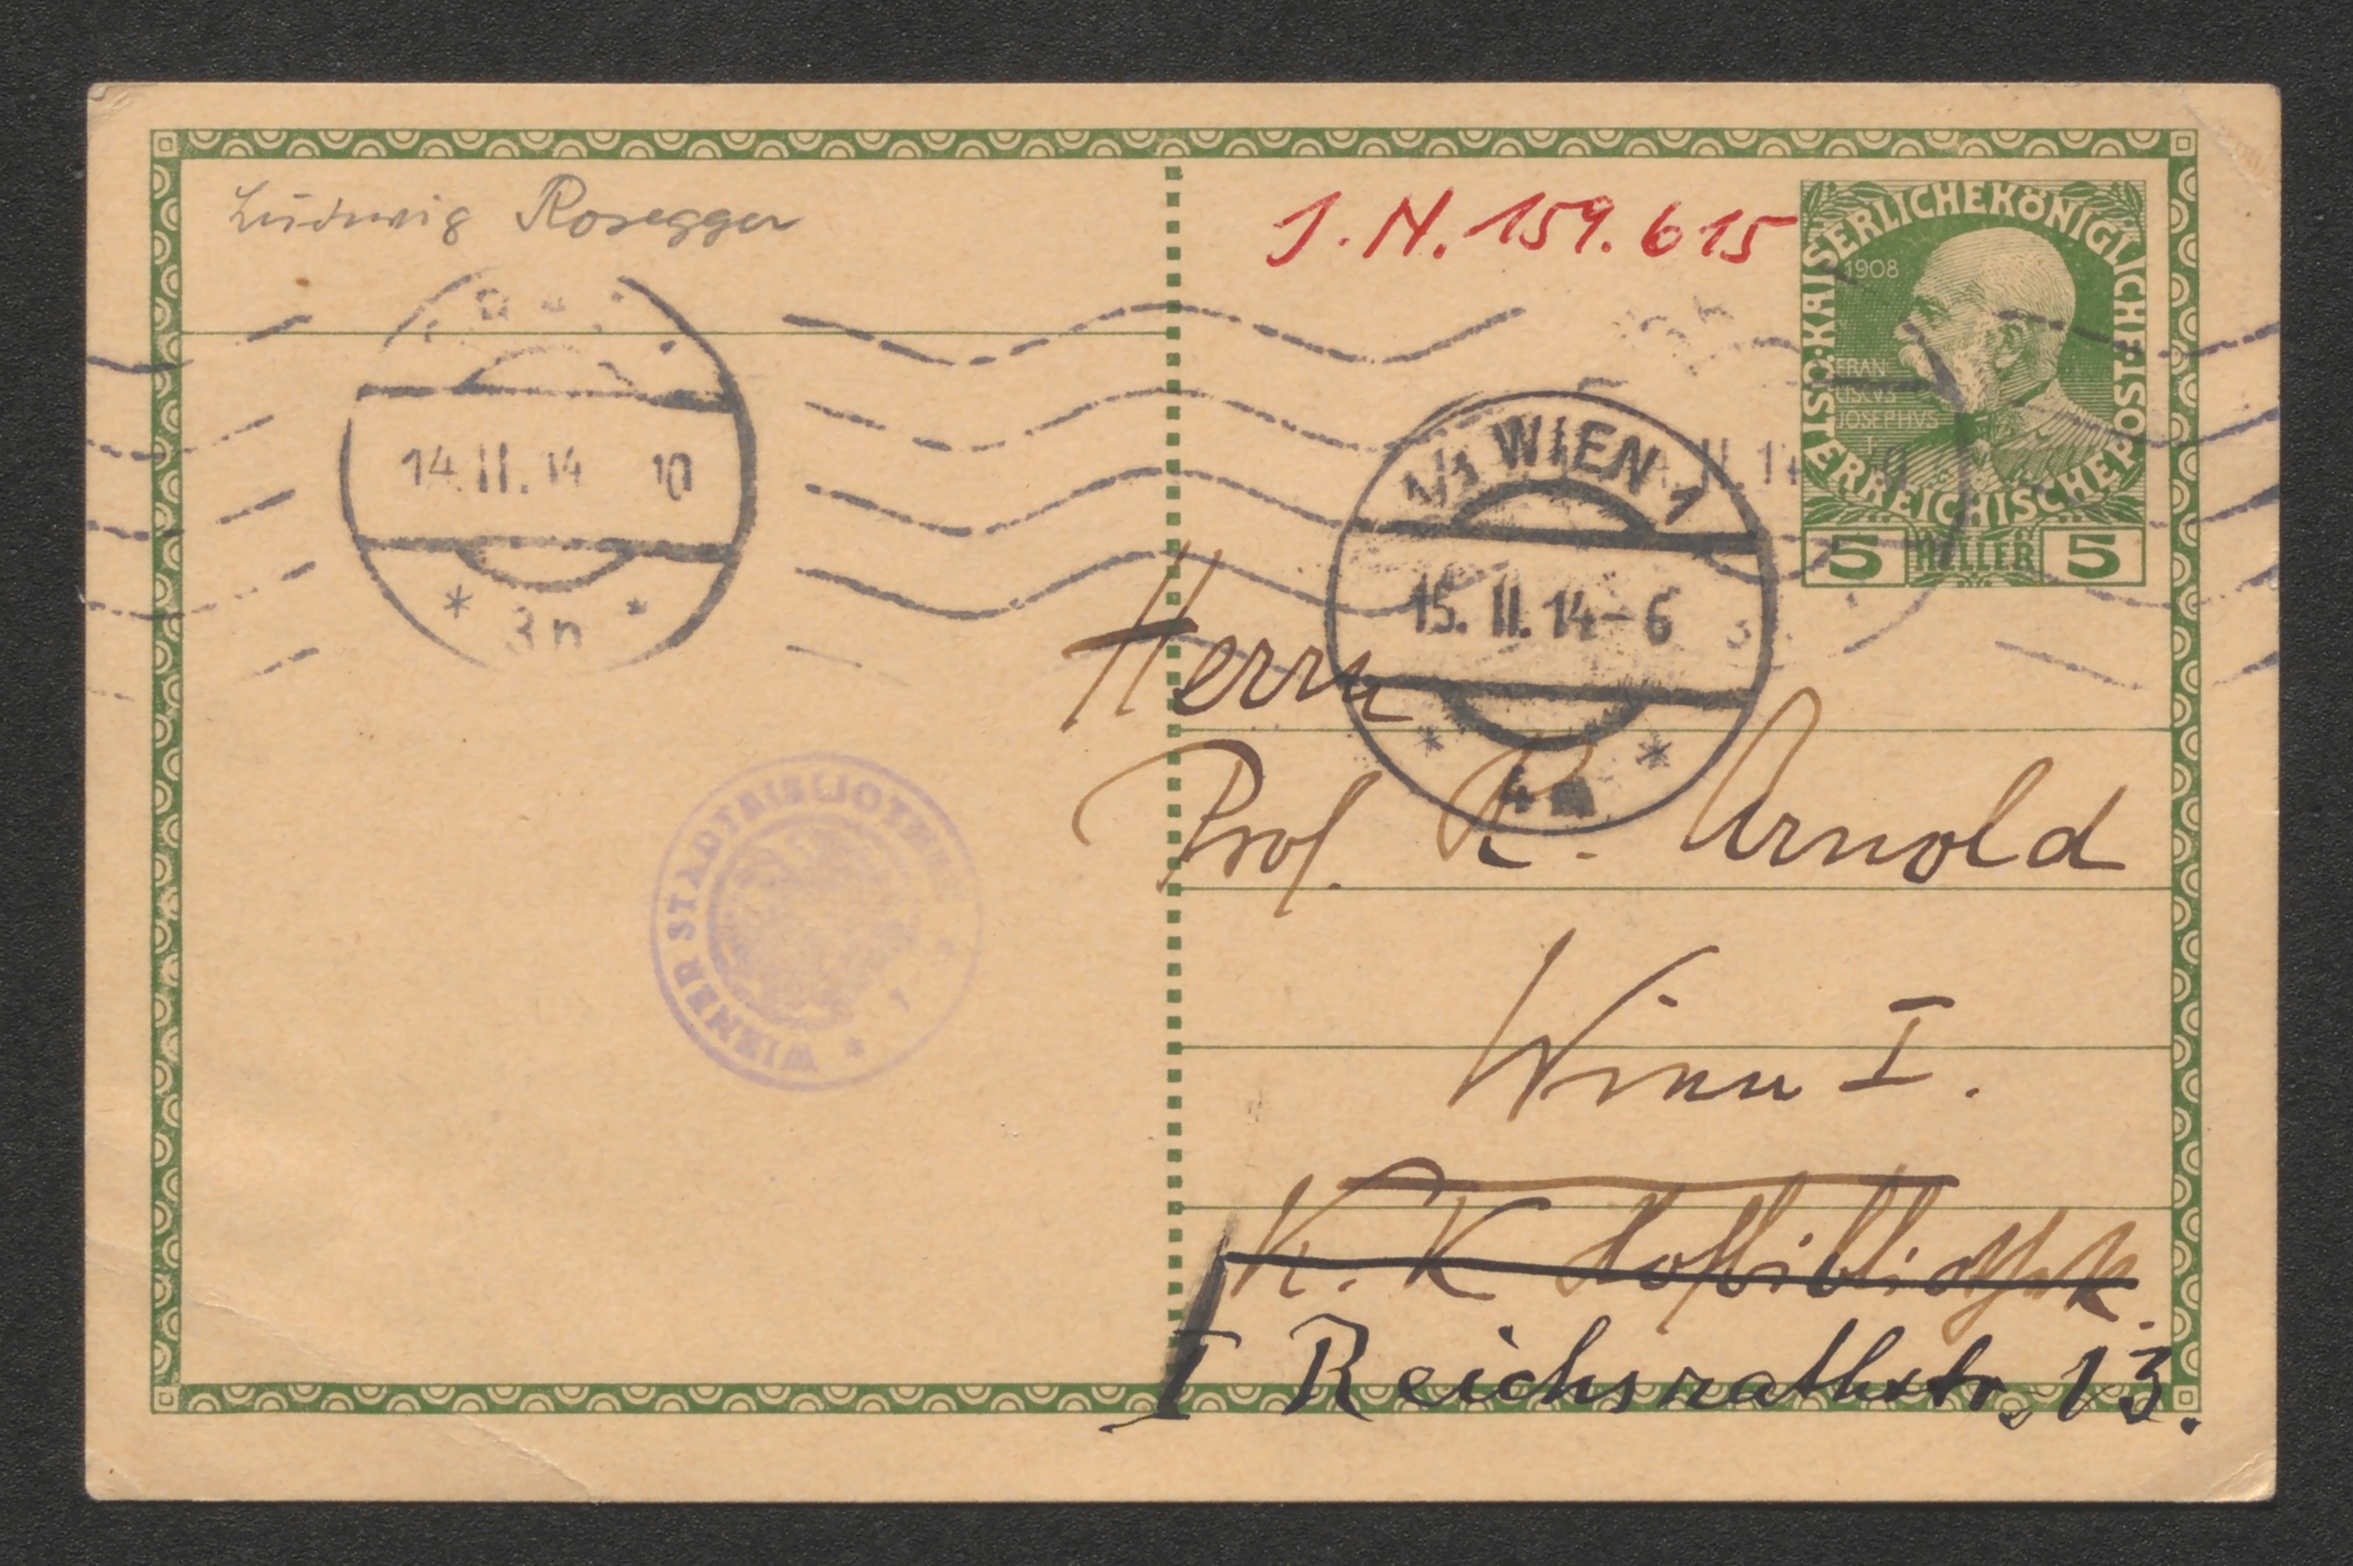 Ludwig Rosegger
J.N. 159.615
KAISERLICHEKÖNIGLICHE
ÖSTERREICHISCHE POST
1908
FRAN
CISCVS
JOSEPHVS
I
5 HELLER 5
14.II.14 10
* 3n *
1/1 WIEN 1
15. II. 14-6
* *
Herrn
Prof. R. Arnold
Wien I.
K. K Hofbibliothek.
I Reichsrathstr. 13.
WIENER STADTBIBLIOTHEK